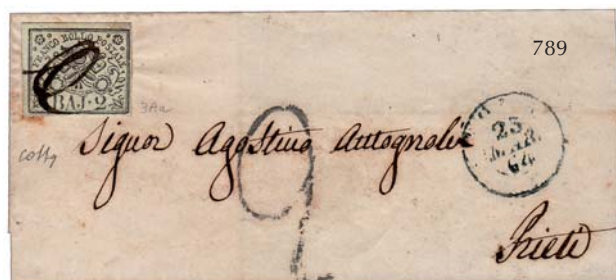 789
FRANCO BOLLO POSTALE
BAJ. 2
3Aa
23
MAR.
64
Signor Agostino Antognoli
Rieti